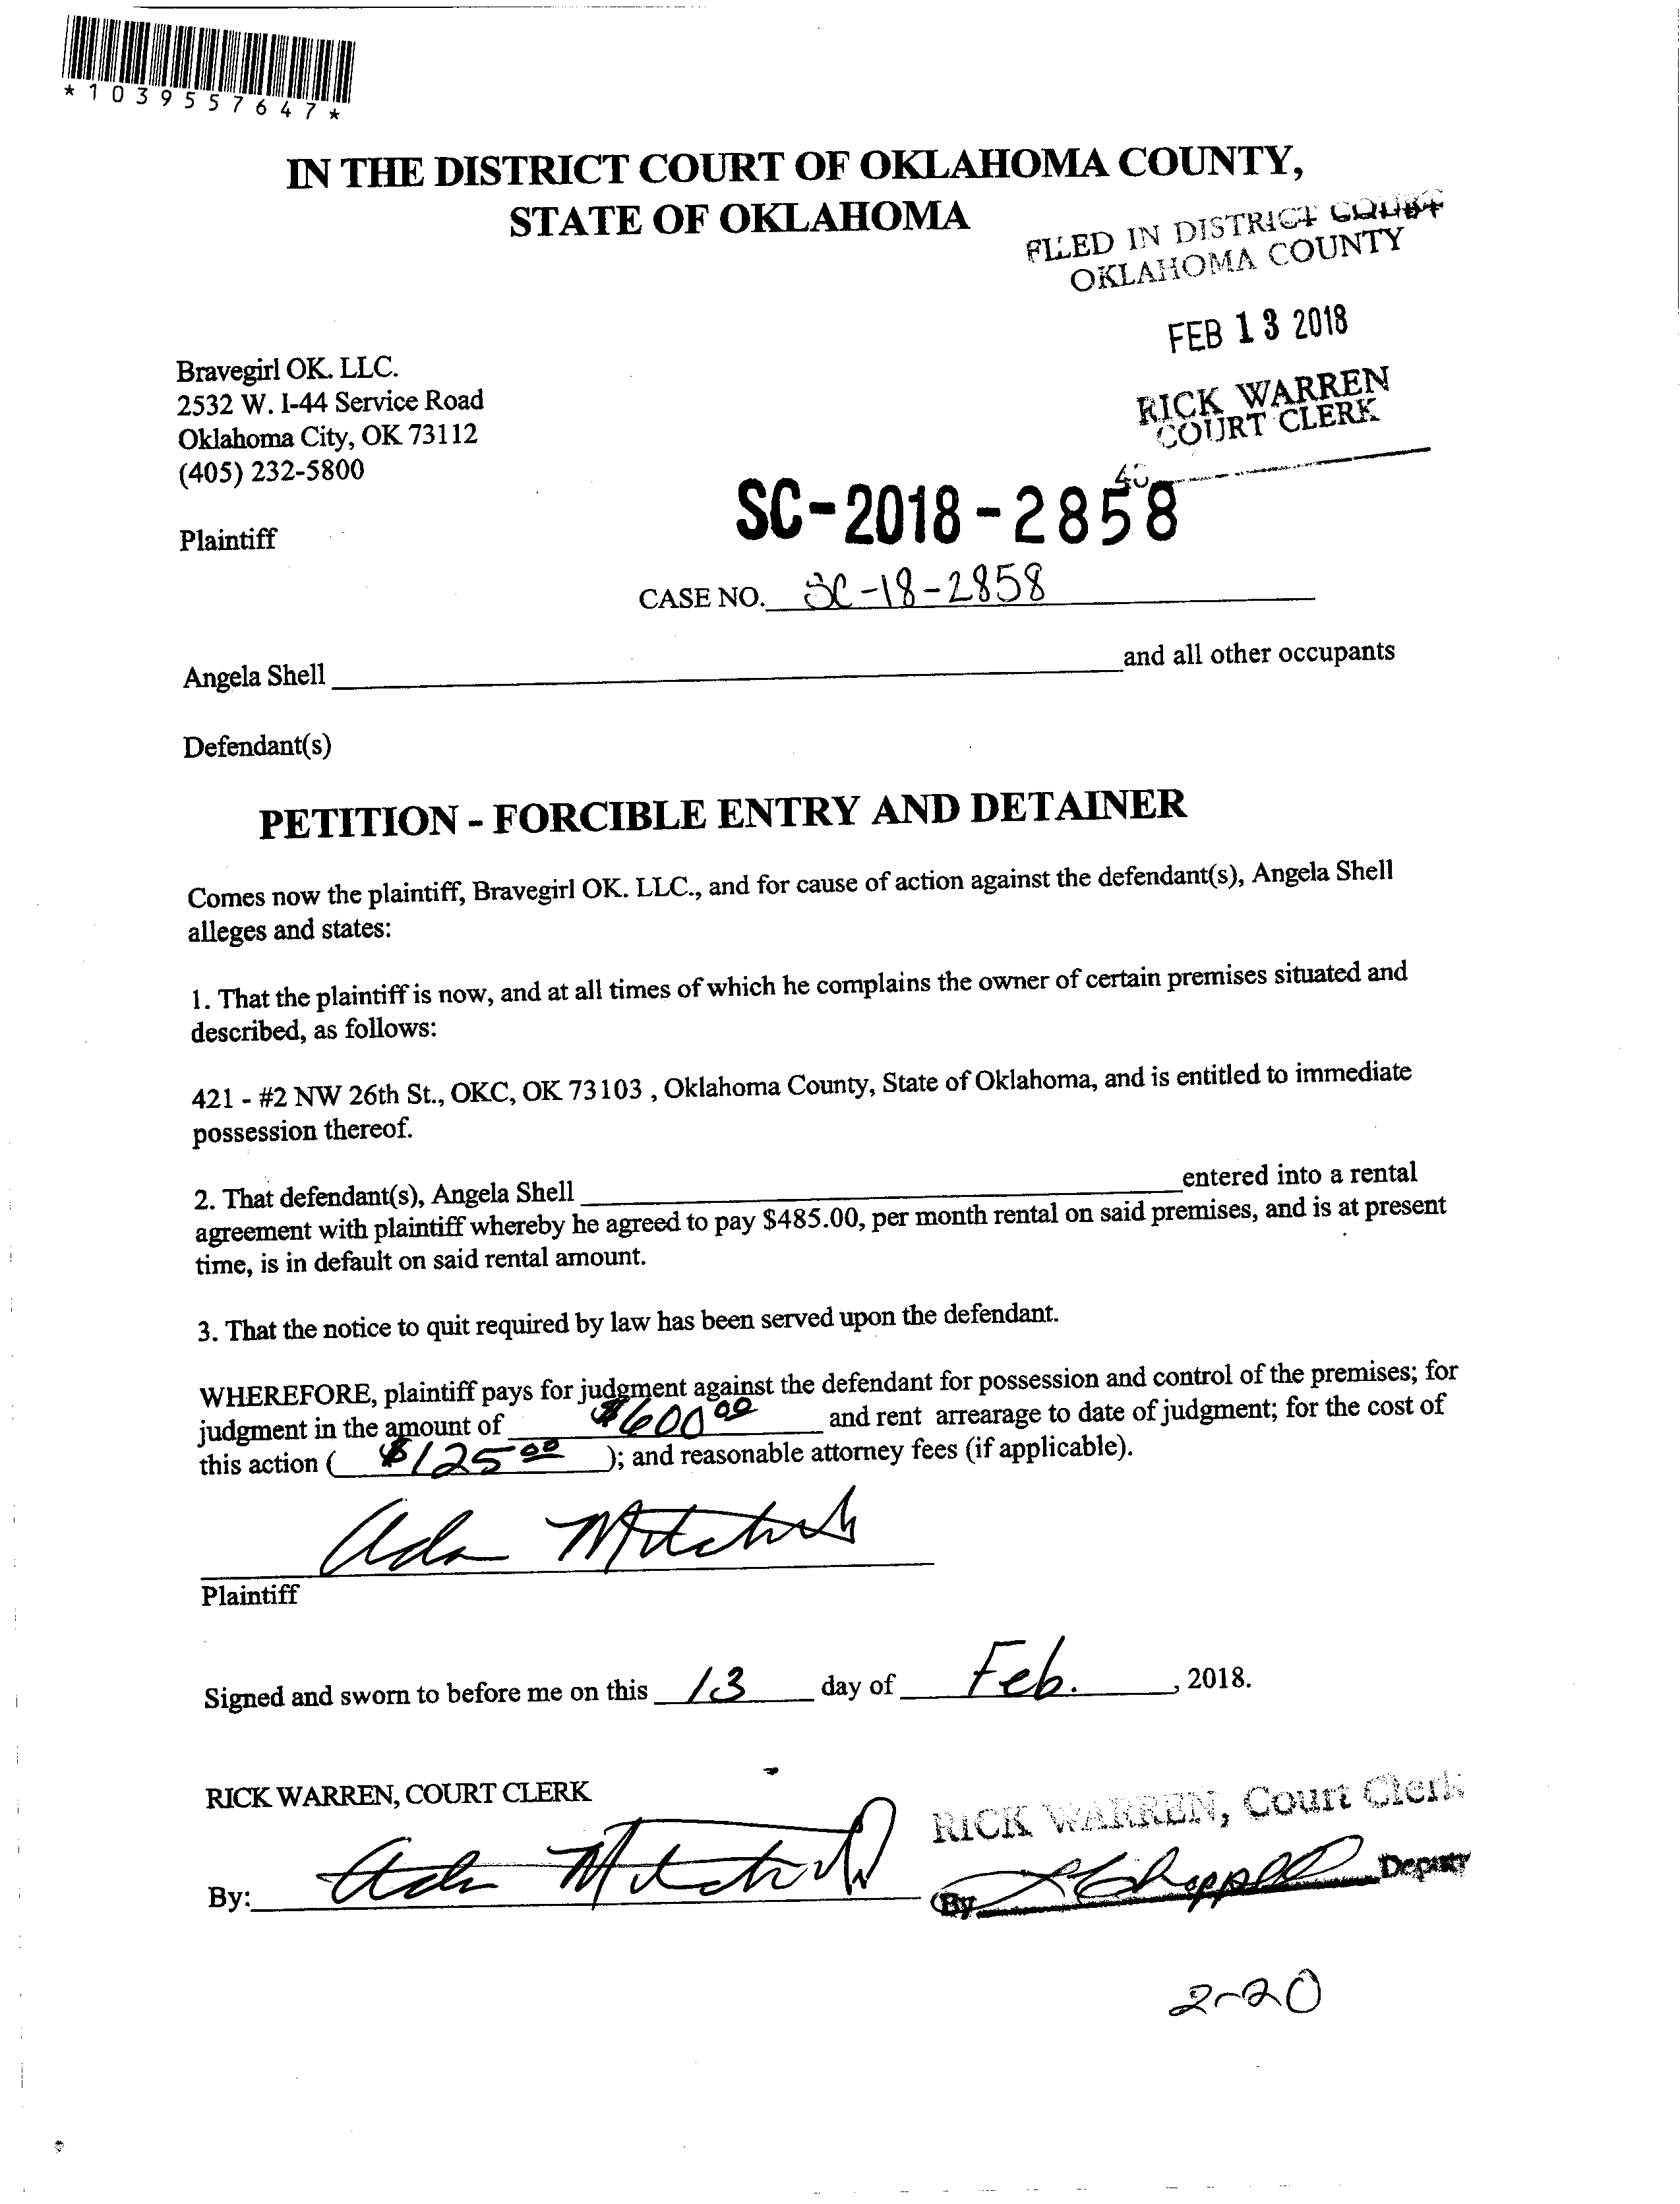 *1039557647*
IN THE DISTRICT COURT OF OKLAHOMA COUNTY,
STATE OF OKLAHOMA
FILED IN DISTRICT COURT
OKLAHOMA COUNTY
FEB 13 2018
RICK WARREN
COURT CLERK
Bravegirl OK. LLC.
2532 W. I-44 Service Road
Oklahoma City, OK 73112
(405) 232-5800
Plaintiff
SC-2018-2858
CASE NO. SC-18-2858
Angela Shell and all other occupants
Defendant(s)
PETITION - FORCIBLE ENTRY AND DETAINER
Comes now the plaintiff, Bravegirl OK. LLC., and for cause of action against the defendant(s), Angela Shell
alleges and states:
1. That the plaintiff is now, and at all times of which he complains the owner of certain premises situated and
described, as follows:
421 - #2 NW 26th St., OKC, OK 73103 , Oklahoma County, State of Oklahoma, and is entitled to immediate
possession thereof.
2. That defendant(s), Angela Shell entered into a rental
agreement with plaintiff whereby he agreed to pay $485.00, per month rental on said premises, and is at present
time, is in default on said rental amount.
3. That the notice to quit required by law has been served upon the defendant.
WHEREFORE, plaintiff pays for judgment against the defendant for possession and control of the premises; for
judgment in the amount of $600 00 and rent arrearage to date of judgment; for the cost of
this action ( $125 00 ); and reasonable attorney fees (if applicable).
Ada
Plaintiff
Signed and sworn to before me on this 13 day of Feb. , 2018.
RICK WARREN, COURT CLERK
RICK WARREN, Court Clerk
By: Ada
By Deputy
2-20